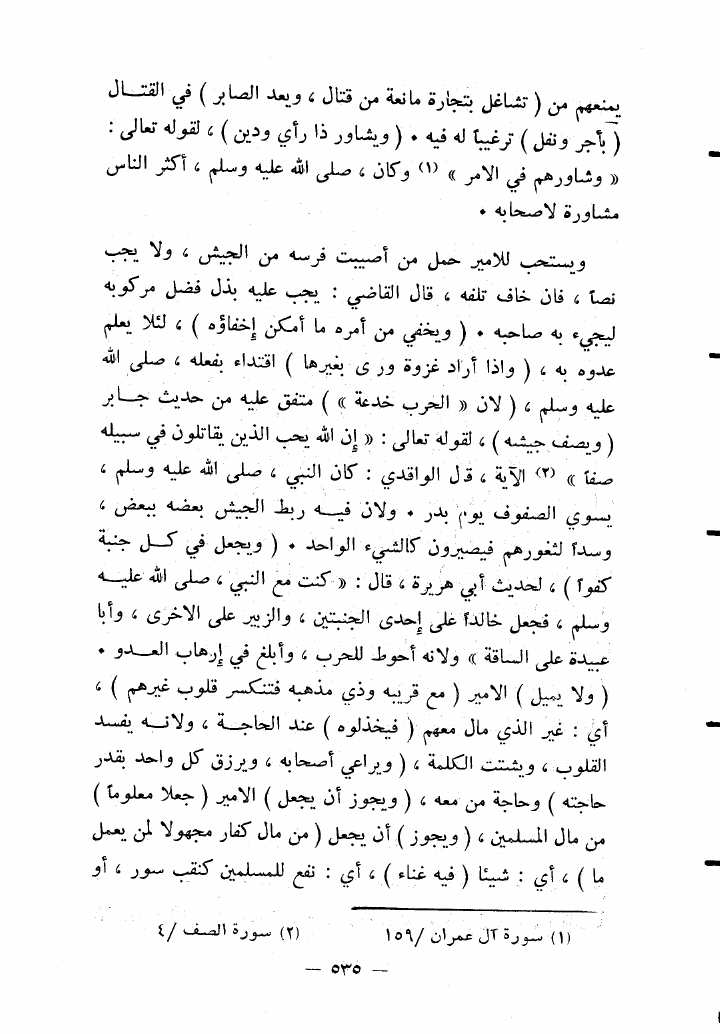 يمنعهم من ( تشاغل بتجارة مانعة من قتال ، ويعد الصابر ) في القتــال
( بأجر ونفل ) ترغيباً له فيه • ( ويشاور ذا رأي ودين ) ، لقوله تعالى :
« وشاورهم في الامر » (١) وكان ، صلى الله عليه وسلم ، أكثر الناس
مشاورة لاصحابه •
ويستحب للامير حمل من أصيبت فرسه من الجيش ، ولا يجب
نصاً ، فان خاف تلفه ، قال القاضي : يجب عليه بذل فضل مركوبه
ليجيء به صاحبه • ( ويخفي من أمره ما أمكن إخفاؤه ) ، لئلا يعلم
عدوه به ، ( واذا أراد غزوة ورى بغيرها ) اقتداء بفعله ، صلى الله
عليه وسلم ، ( لان « الحرب خدعة » ) متفق عليه من حديث جــابر
( ويصف جيشه ) ، لقوله تعالى : « إن الله يحب الذين يقاتلون في سبيله
صفاً » (٢) الآية ، قل الواقدي : كان النبي ، صلى الله عليه وسلم ،
يسوي الصفوف يوم بدر • ولان فيــه ربط الجيش بعضه ببعض ،
وسداً لثغورهم فيصيرون كالشيء الواحد • ( ويجعل في كــل جنبة
كفواً ) ، لحديث أبي هريرة ، قال : « كنت مع النبي ، صلى الله عليــه
وسلم ، فجعل خالداً على إحدى الجنبتين ، والزبير على الاخرى ، وأبا
عبيدة على الساقة » ولانه أحوط للحرب ، وأبلغ في إرهاب العــدو •
( ولا يميل ) الامير ( مع قريبه وذي مذهبه فتنكسر قلوب غيرهم ) ،
أي : غير الذي مال معهم ( فيخذلوه ) عند الحاجــة ، ولانــه يفسد
القلوب ، ويشتت الكلمة ، ( ويراعي أصحابه ، ويرزق كل واحد بقدر
حاجته ) وحاجة من معه ، ( ويجوز أن يجعل ) الامير ( جعلا معلوماً )
من مال المسلمين ، ( ويجوز ) أن يجعل ( من مال كفار مجهولا لمن يعمل
ما ) ، أي : شيئا ( فيه غناء ) ، أي : نفع للمسلمين كنقب سور ، أو
(١) سورة آل عمران /١٥٩ (٢) سورة الصف /٤
— ٥٣٥ —